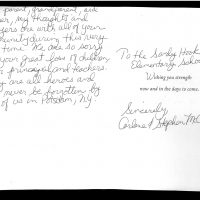 parent, grandparent, aide
my thoughts and
are with all of your
during this very
time. We are so sorry
your great loss of children,
principal and teachers.
are all heroes and
never be forgotten by
of us in Potsdam, NY.
To the Sandy Hook
Elementary School
Wishing you strength
now and in the days to come.
Sincerely